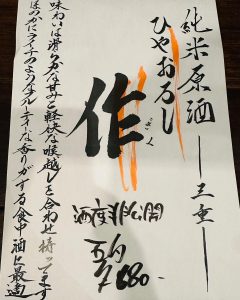 純米原酒 ― 三重 ―
ひやおろし
作
ざく
五勺
¥680-
味わいは滑らかな甘みと軽快な喉越しを合わせ持ってます
ほのかにライチのようなフルーティーな香りがする食中酒に最適